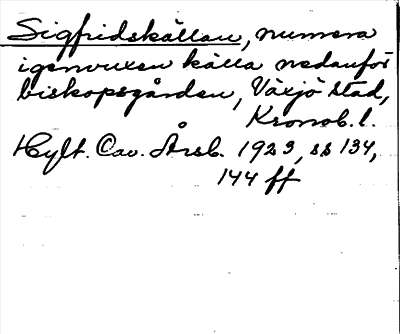 Sigfridskällan, numera
igenvuxen källa nedanför
biskopsgården, Växjö stad,
Kronob. l.
Hylt. Cav. Årsb. 1923, ss 134,
144 ff